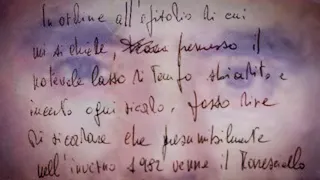 In ordine all'episodio di cui
mi si chiede, premesso il
notevole lasso di tempo sbiadito e
incerto ogni ricordo, posso dire
di ricordare che presumibilmente
nell'inverno 1982 venne il Maresciallo